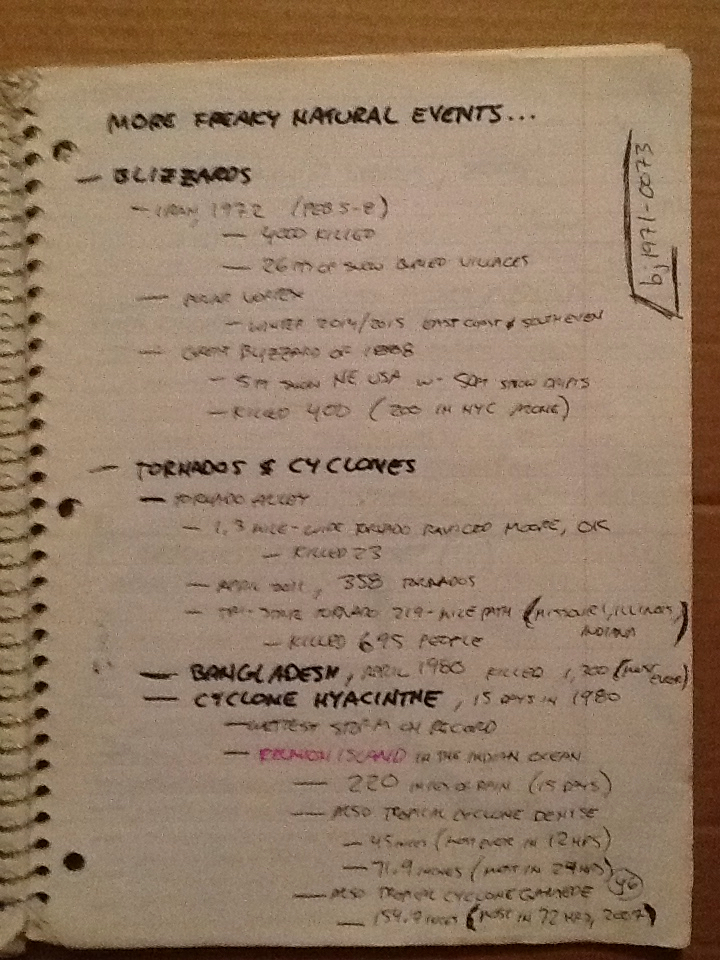 MORE FREAKY NATURAL EVENTS...
bj1971-0073
- BLIZZARDS
- IRAN, 1972 (FEB 3-8)
- 4000 KILLED
- 26 FT OF SNOW BURIED VILLAGES
- POLAR VORTEX
- WINTER 2014/2015 EAST COAST & SOUTH EVEN
- GREAT BLIZZARD OF 1888
- 5 FT SNOW NE USA W- 50 FT SNOW DRIFTS
- KILLED 400 (200 IN NYC ALONE)
- TORNADOS & CYCLONES
- TORNADO ALLEY
- 1.3 MILE-WIDE TORNADO RAVAGED MOORE, OK
- KILLED 23
- APRIL 2011, 358 TORNADOS
- TRI-STATE TORNADO 219-MILE PATH (MISSOURI, ILLINOIS, INDIANA)
- KILLED 695 PEOPLE
- BANGLADESH, APRIL 1980 KILLED 1,300 (MOST EVER)
- CYCLONE HYACINTHE, 15 DAYS IN 1980
- WETTEST STORM ON RECORD
- REUNION ISLAND IN THE INDIAN OCEAN
- 220 INCHES OF RAIN (15 DAYS)
- ALSO TROPICAL CYCLONE DENISE
- 45 INCHES (MOST EVER IN 12 HRS)
- 71.9 INCHES (MOST IN 24 HRS)
- ALSO TROPICAL CYCLONE GAMEDE
- 154.9 INCHES (MOST IN 72 HRS, 2007)
46